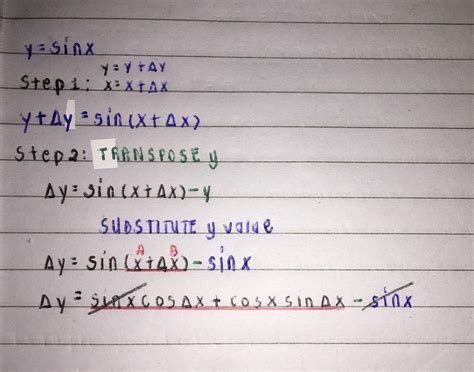 y=sinx
y=y+Δy
Step 1: x=x+Δx
y+Δy=sin(x+Δx)
Step 2: TRANSPOSE y
Δy=sin(x+Δx)-y
SUBSTITUTE y value
A B
Δy=sin(x+Δx)-sinx
Δy=sinxcosΔx+cosxsinΔx-sinx